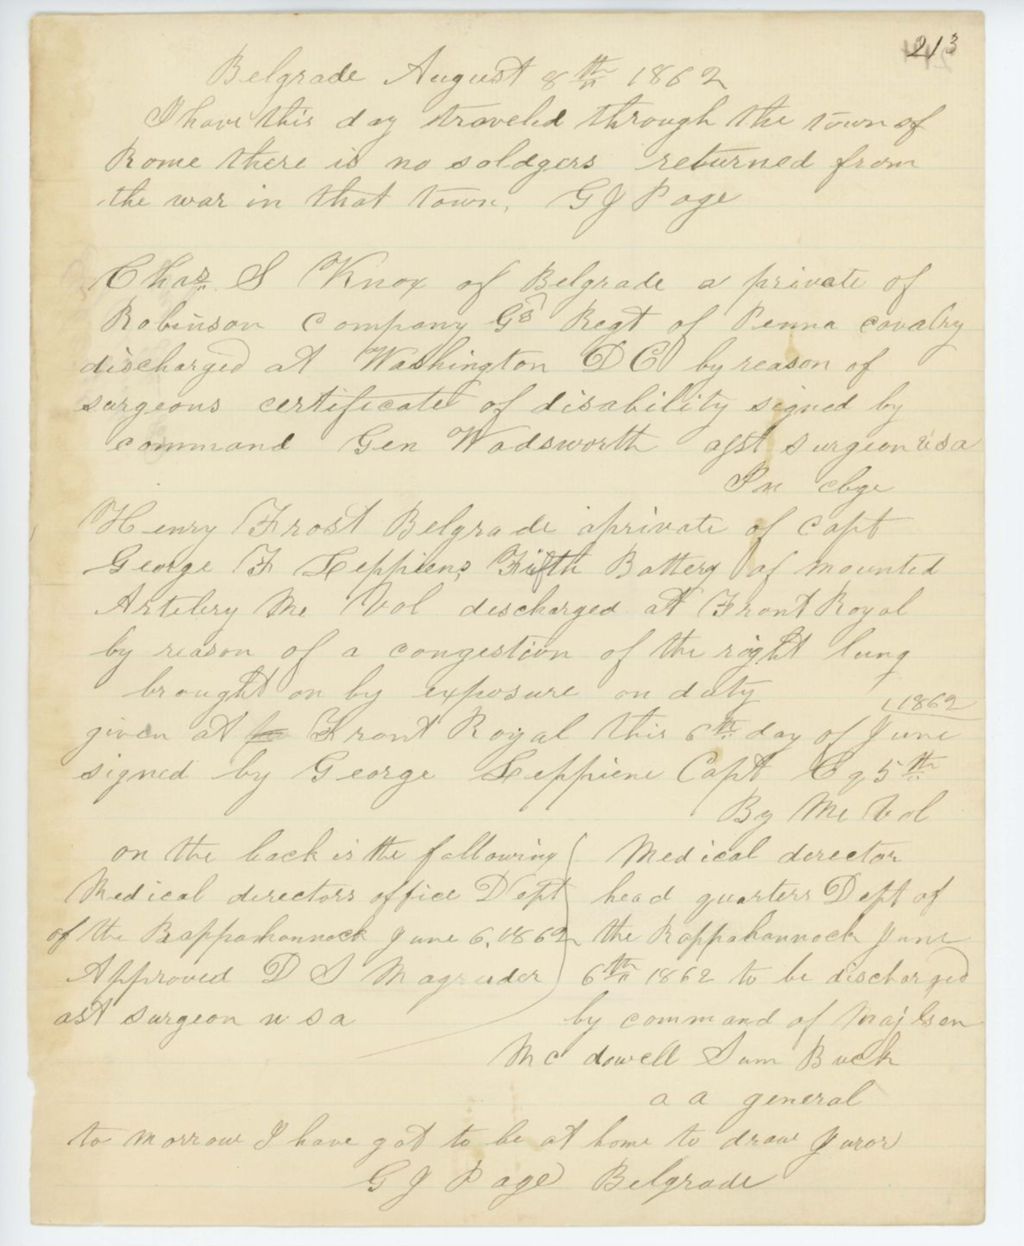 213
Belgrade August 8th 1862
I have this day traveled through the town of
Rome there is no soldgers returned from
the war in that town. G J Page
Chas. S Knox of Belgrade a private of
Robinson Company G 8 Regt of Penna cavalry
discharged at Washington D C by reason of
surgeons certificate of disability signed by
command Gen Wadsworth asst surgeon u s a
In chge
Henry Frost Belgrade a private of Capt
George F Leppiens Fifth Battery of mounted
Artelery Me Vol discharged at Front Royal
by reason of a congestion of the right lung
brought on by exposure on duty
given at Front Royal this 6th day of June 1862
signed by George Leppiene Capt 5th
By Me Vol
on the back is the following
Medical directors office Dept
of the Rappahannock June 6, 1862
Approved D S Magruder
ast surgeon u s a
Medical derector
head quarters Dept of
the Rappahannock June
6th 1862 to be discharged
by command of Maj Gen
Mc dowell Sam Buck
a a general
to morrow I have got to be at home to draw Juror
G J Page Belgrade